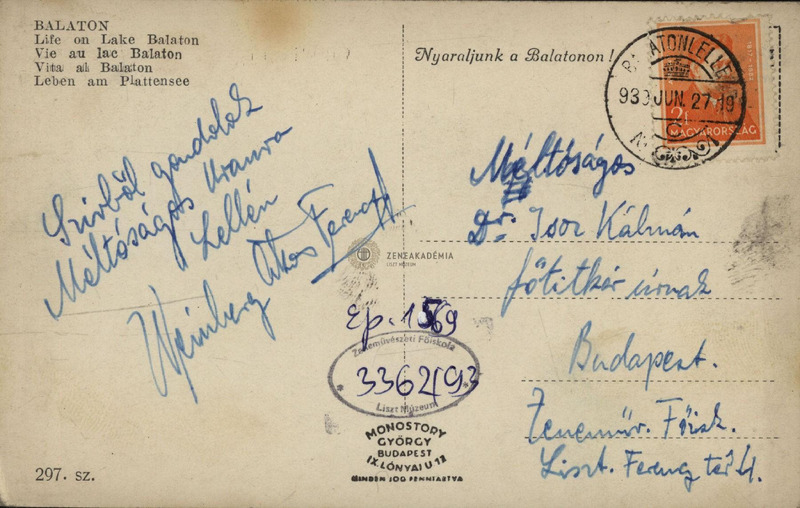 BALATON
Life on Lake Balaton
Vie au lac Balaton
Vita al Balaton
Leben am Plattensee
Nyaraljunk a Balatonon!
BALATONLELLE
939 JUN. 27. 19
2f
MAGYARORSZÁG
Szivből gondolok
Méltóságos Uramra
Lellén
Weinberg Ákos Ferenc
Méltóságos
Dr. Isoz Kálmán
főtitkár úrnak
Budapest.
Zeneműv. Főisk.
Liszt. Ferenc tér
ZENEAKADÉMIA
LISZT MÚZEUM
Ep. 1569
Zeneművészeti Főiskola
3362/93
Liszt Múzeum
MONOSTORY
GYÖRGY
BUDAPEST
IX. LÓNYAI U 12
MINDEN JOG FENNTARTVA
297. sz.